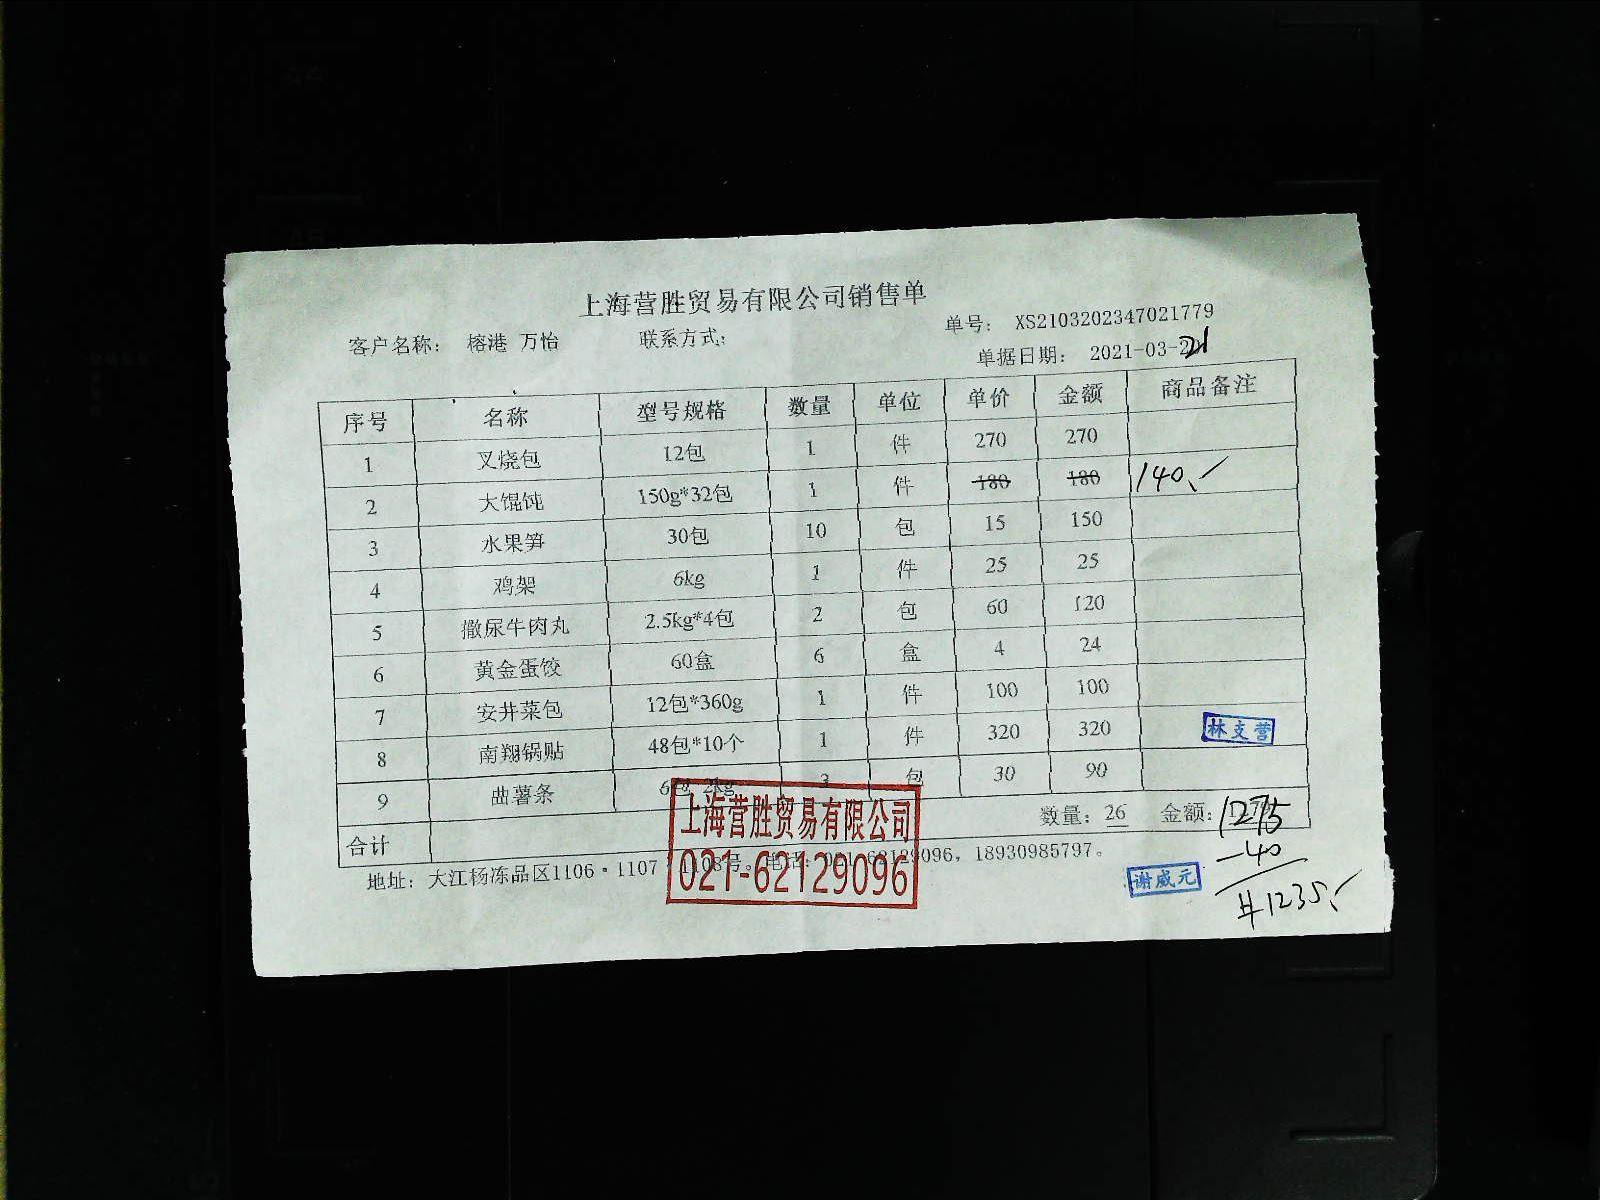 上海营胜贸易有限公司销售单
单号： XS2103202347021779
客户名称： 榕港 万怡 联系方式：
单据日期： 2021-03-21
序号 名称 型号规格 数量 单位 单价 金额 商品备注
1 叉烧包 12包 1 件 270 270
2 大馄饨 150g*32包 1 件 180 180 140.
3 水果笋 30包 10 包 15 150
4 鸡架 6kg 1 件 25 25
5 撒尿牛肉丸 2.5kg*4包 2 包 60 120
6 黄金蛋饺 60盒 6 盒 4 24
7 安井菜包 12包*360g 1 件 100 100
8 南翔锅贴 48包*10个 1 件 320 320
林支营
9 曲薯条 6包 2kg 3 包 30 90
合计 数量：26 金额：1275
-40
#1235.
地址：大江杨冻品区1106·1107 1108号。电话：021-62129096，18930985797。
上海营胜贸易有限公司
021-62129096
谢威元